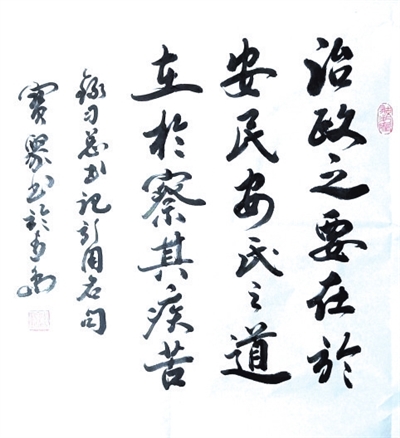 治政之要在於
安民安民之道
在於察其疾苦
錄习总书记引用名句
寶书於